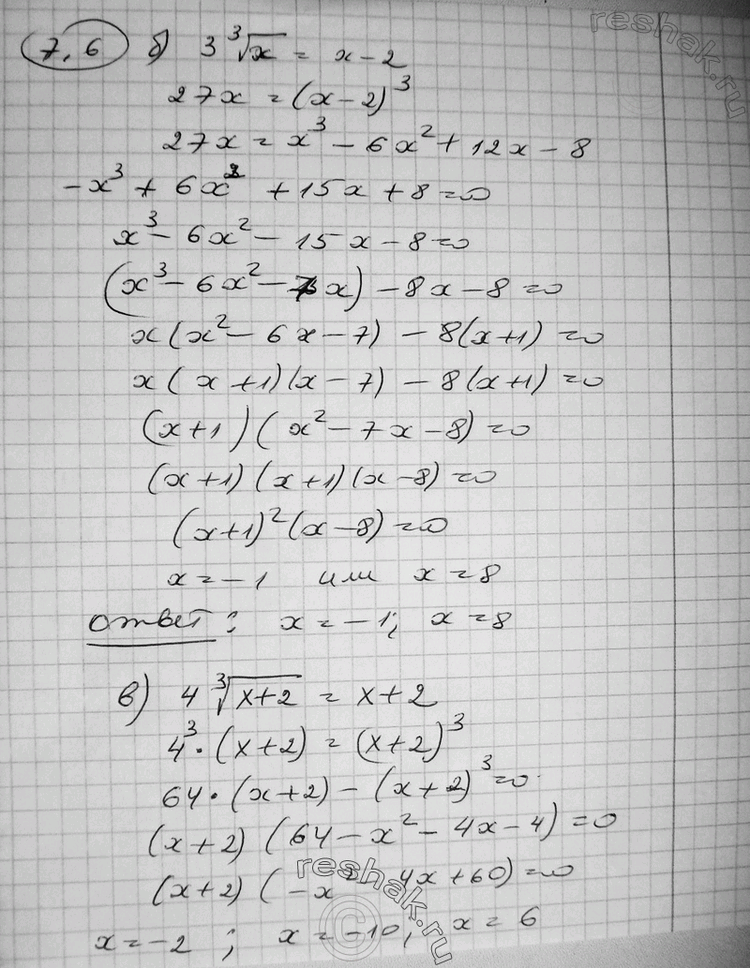 reshak.ru
7,6 б) 3∛x = x-2
27x = (x-2)³
27x = x³ - 6x² + 12x - 8
-x³ + 6x² + 15x + 8 = 0
x³ - 6x² - 15x - 8 = 0
(x³ - 6x² - 7x) - 8x - 8 = 0
x(x² - 6x - 7) - 8(x+1) = 0
x(x+1)(x-7) - 8(x+1) = 0
(x+1)(x² - 7x - 8) = 0
(x+1)(x+1)(x-8) = 0
(x+1)²(x-8) = 0
x = -1 или x = 8
Ответ: x = -1; x = 8
в) 4∛(x+2) = x+2
4³·(x+2) = (x+2)³
64·(x+2) - (x+2)³ = 0
(x+2)(64 - x² - 4x - 4) = 0
(x+2)(-x² - 4x + 60) = 0
x = -2; x = -10; x = 6
reshak.ru
©